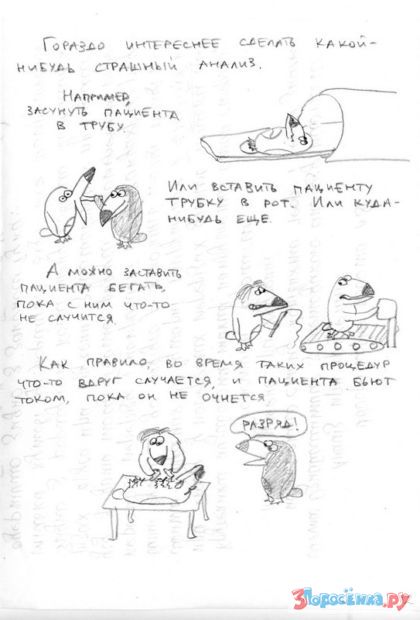 ГОРАЗДО ИНТЕРЕСНЕЕ СДЕЛАТЬ КАКОЙ-
НИБУДЬ СТРАШНЫЙ АНАЛИЗ.
НАПРИМЕР,
ЗАСУНУТЬ ПАЦИЕНТА
В ТРУБУ.
ИЛИ ВСТАВИТЬ ПАЦИЕНТУ
ТРУБКУ В РОТ. ИЛИ КУДА-
НИБУДЬ ЕЩЕ.
А МОЖНО ЗАСТАВИТЬ
ПАЦИЕНТА БЕГАТЬ,
ПОКА С НИМ ЧТО-ТО
НЕ СЛУЧИТСЯ
КАК ПРАВИЛО, ВО ВРЕМЯ ТАКИХ ПРОЦЕДУР
ЧТО-ТО ВДРУГ СЛУЧАЕТСЯ, И ПАЦИЕНТА БЬЮТ
ТОКОМ, ПОКА ОН НЕ ОЧНЕТСЯ
РАЗРЯД!
3Поросёнка.ру